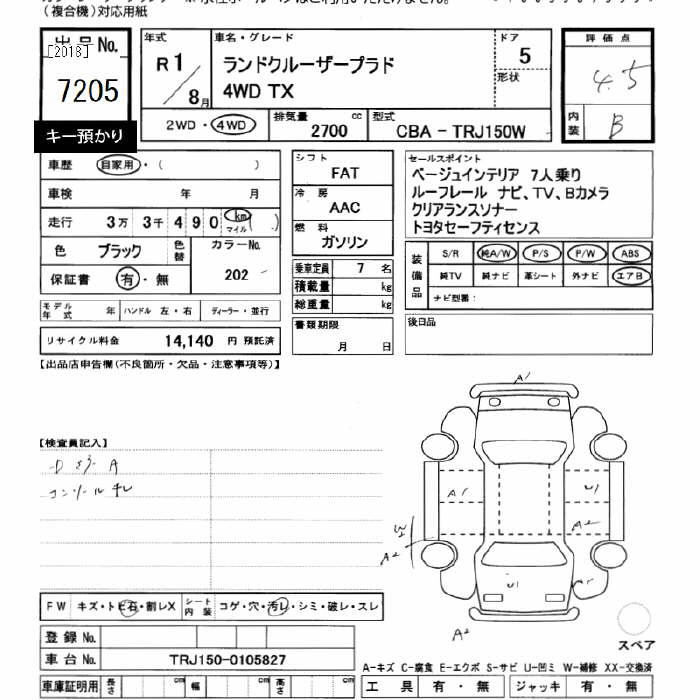 (複合機)対応用紙
出品No.
[2018]
7205
キー預かり
年式
R1/8月
車名・グレード
ランドクルーザープラド
4WD TX
ドア
5
形状
評価点
4.5
内装
B
2WD・4WD
排気量
2700
cc
型式
CBA - TRJ150W
車歴 自家用・( )
車検 年 月
走行 3万 3千 4 9 0 km マイル ( )
色 ブラック
色替
カラーNo.
202
保証書 有・無
シフト
FAT
冷房
AAC
燃料
ガソリン
乗車定員 7 名
積載量 kg
総重量 kg
書類期限
月 日
セールスポイント
ベージュインテリア 7人乗り
ルーフレール ナビ、TV、Bカメラ
クリアランスソナー
トヨタセーフティセンス
装備品
S/R 純A/W P/S P/W ABS
純TV 純ナビ 革シート 外ナビ エアB
ナビ型番:
後日品
モデル年式 年 ハンドル 左・右 ディーラー・並行
リサイクル料金 14,140 円 預託済
【出品店申告欄(不良箇所・欠品・注意事項等)】
【検査員記入】
コンソールキレ
A1
A1
U1
A2
W2
A2
U1
A2
FW キズ・トビ石・割レX
シート内装 コゲ・穴・汚レ・シミ・破レ・スレ
登録No.
車台No. TRJ150-0105827
車庫証明用 長さ cm 幅 cm 高さ cm
スペア
A-キズ C-腐食 E-エクボ S-サビ U-凹ミ W-補修 XX-交換済
工具 有・無 ジャッキ 有・無